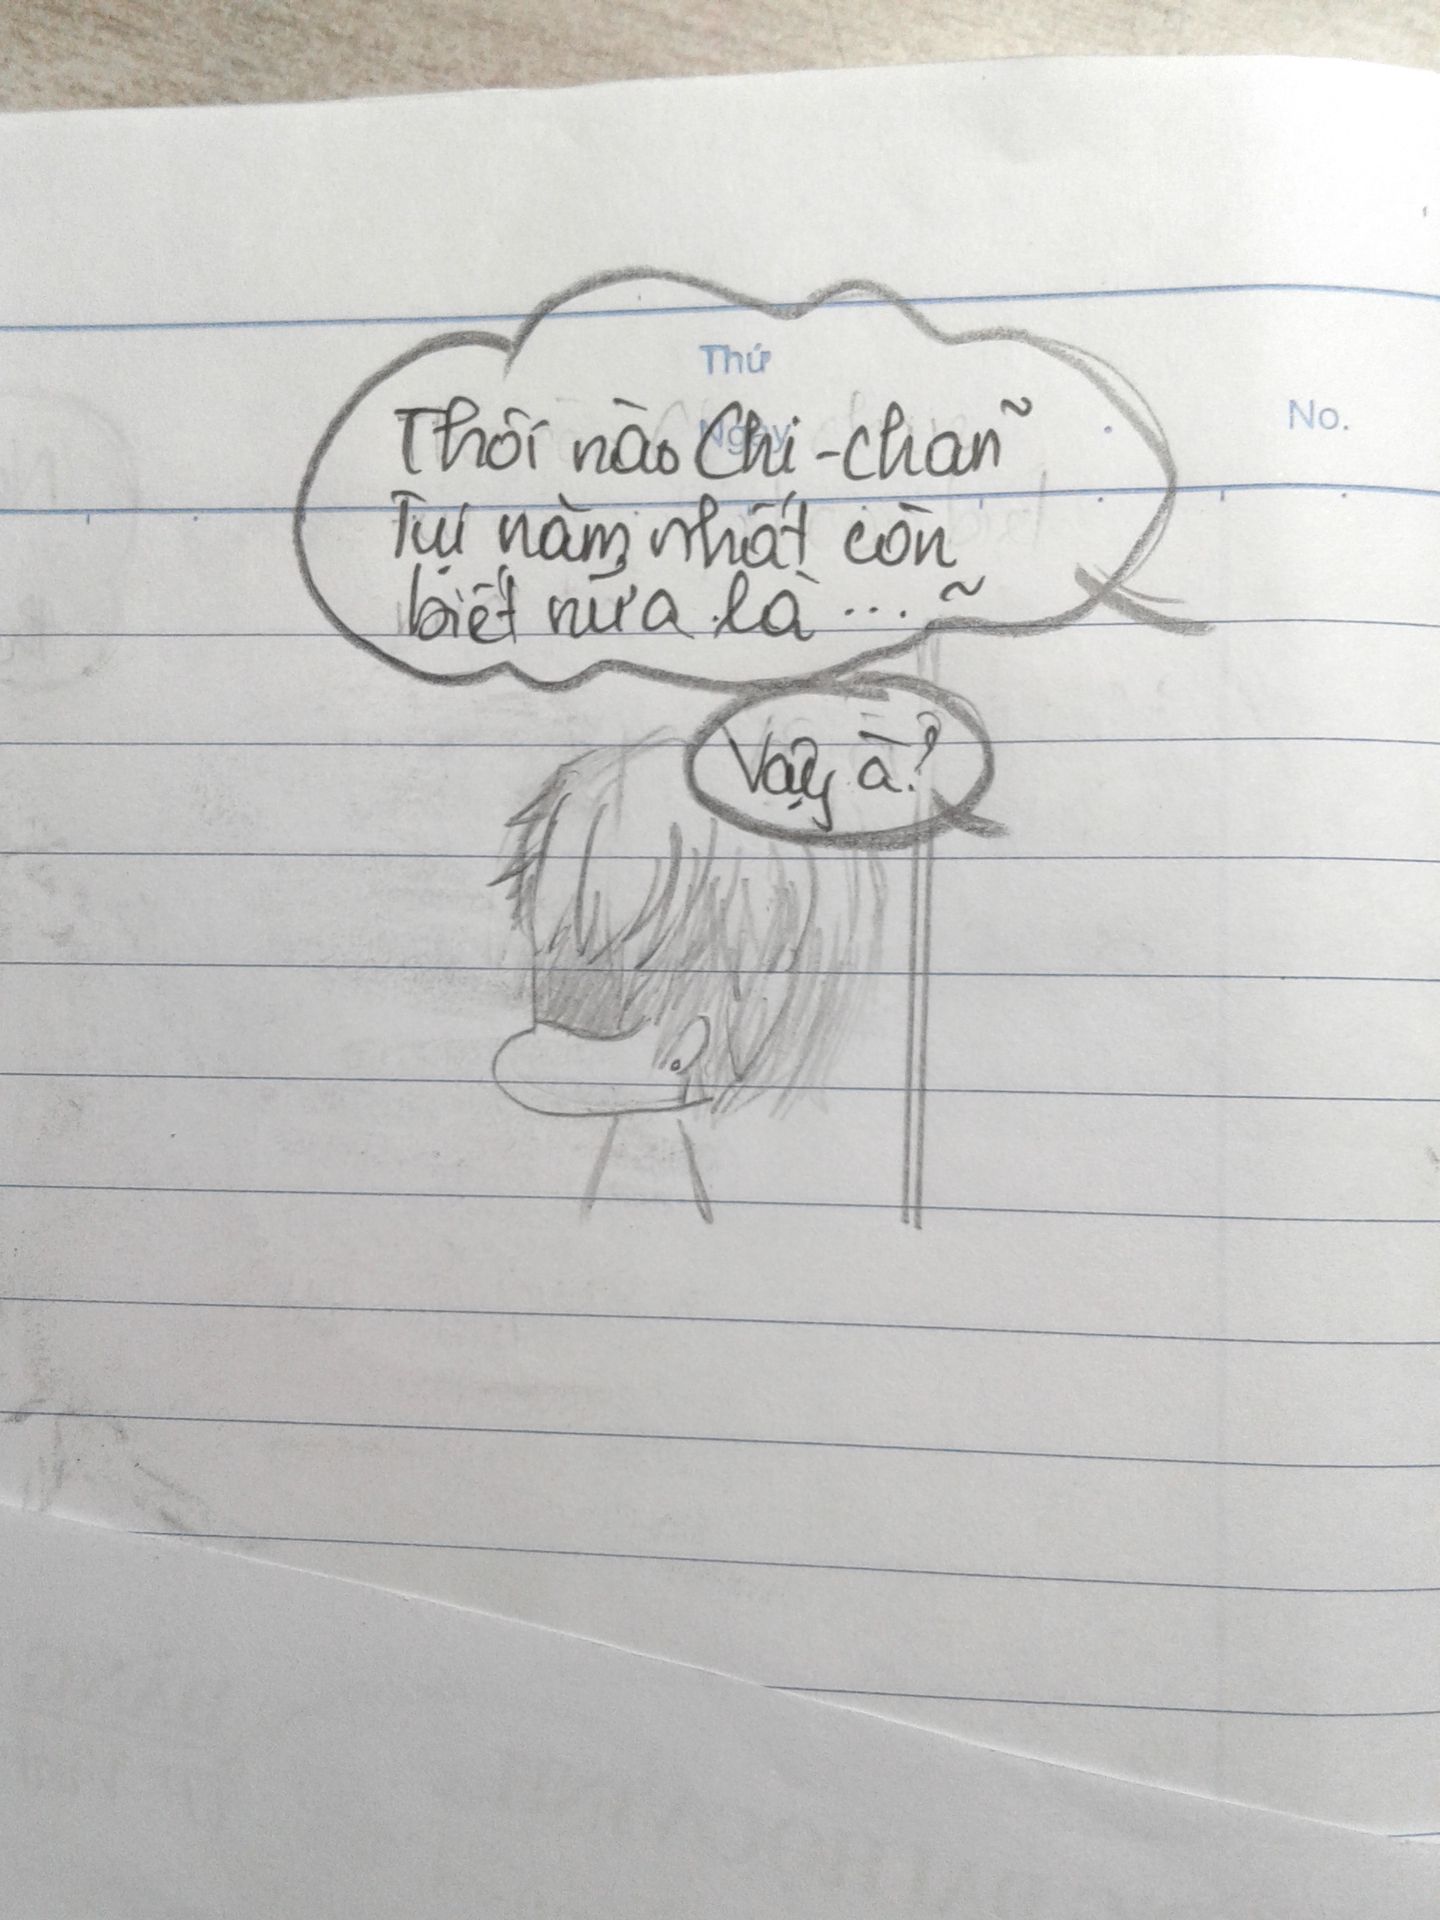 Thứ
Ngày
No.
Thôi nào Chi-chan~
Tụi năm nhất còn
biết nữa là...~
Vậy à?